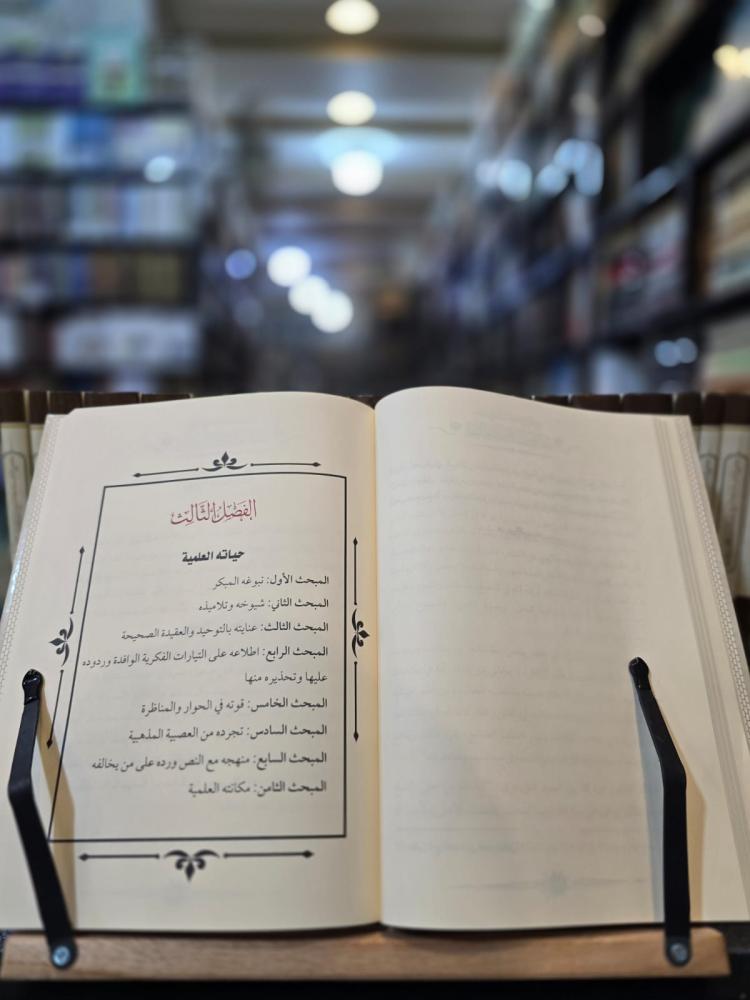 الفصل الثالث
حياته العلمية
المبحث الأول: نبوغه المبكر
المبحث الثاني: شيوخه وتلاميذه
المبحث الثالث: عنايته بالتوحيد والعقيدة الصحيحة
المبحث الرابع: اطلاعه على التيارات الفكرية الوافدة وردوده
عليها وتحذيره منها
المبحث الخامس: قوته في الحوار والمناظرة
المبحث السادس: تجرده من العصبية المذهبية
المبحث السابع: منهجه مع النص ورده على من يخالفه
المبحث الثامن: مكانته العلمية